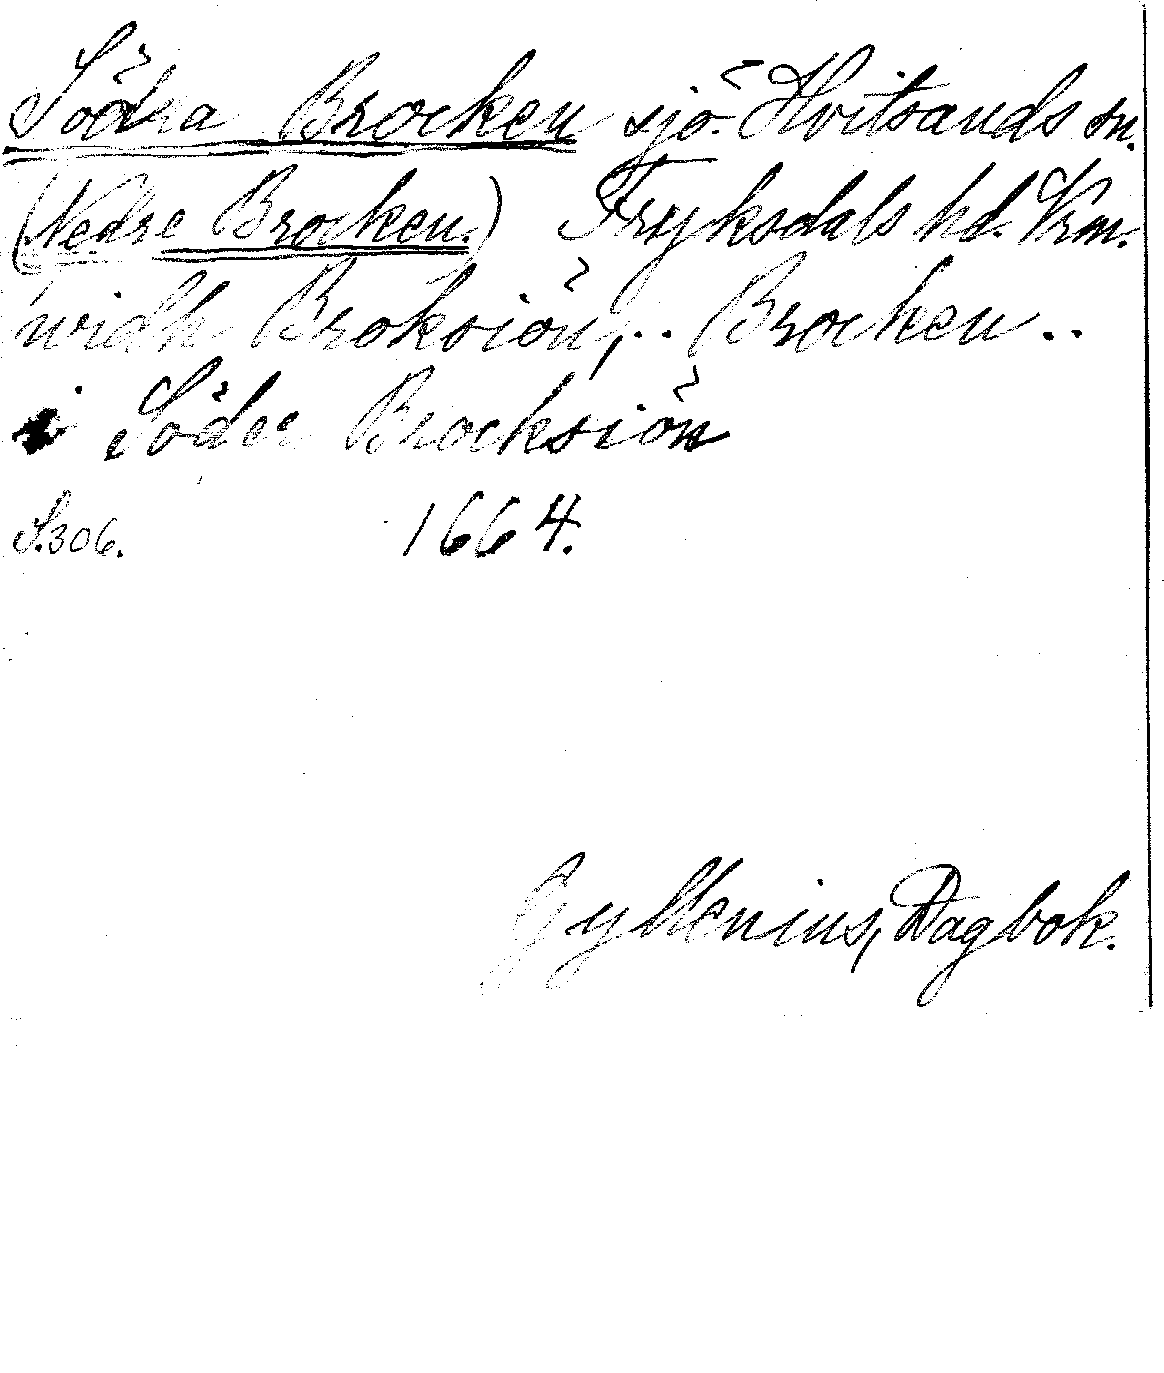 Södra Brocken sjö. Hvitsands sn.
(Nedre Brocken.) Fryksdals hd. Vrm.
widh Broksiön, .. Brocken ..
i Söder Brocksiön
S.306. 1664.
Gyllenius, Dagbok.